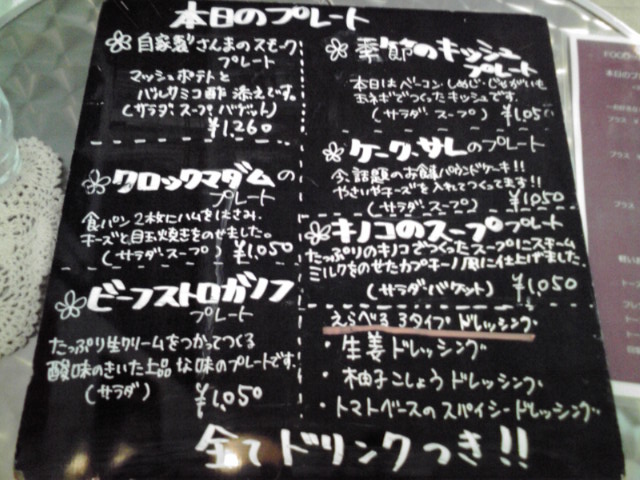 本日のプレート
自家製さんまのスモーク
プレート
マッシュポテトと
バルサミコ酢 添えです。
(サラダ、スープ、バゲット)
¥1,260
クロックマダムの
プレート
食パン2枚にハムをはさみ、
チーズと目玉焼きをのせました。
(サラダ、スープ) ¥1,050
ビーフストロガノフ
プレート
たっぷり生クリームをつかってつくる
酸味のきいた上品な味のプレートです。
(サラダ)
¥1,050
季節のキッシュ
プレート
本日はベーコン・しめじ・じゃがいも
玉ネギでつくったキッシュです。
(サラダ スープ) ¥1,050
ケーク・サレのプレート
今、話題のお食事パウンドケーキ!!
やさいやチーズを入れてつくってます!!
(サラダ、スープ) ¥1,050
キノコのスーププレート
たっぷりのキノコでつくったスープにスチーム
ミルクをのせたカプチーノ風に仕上げました。
(サラダバゲット) ¥1,050
えらべる 3タイプ ドレッシング
・生姜ドレッシング
・柚子こしょうドレッシング
・トマトベースのスパイシードレッシング
全てドリンクつき!!